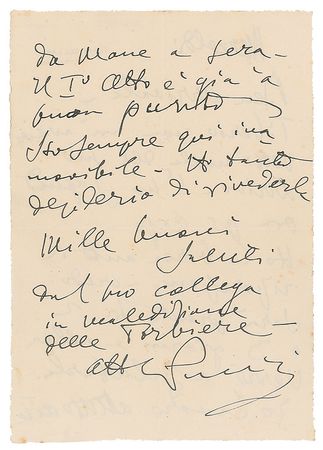 da mane a sera –
Il Iº Atto è già a
buon punto
Sto sempre qui ina
movibile – Ho tanto
desiderio di rivederla
Mille buoni
saluti
dal suo collega
in maledizione
delle Torbiere –